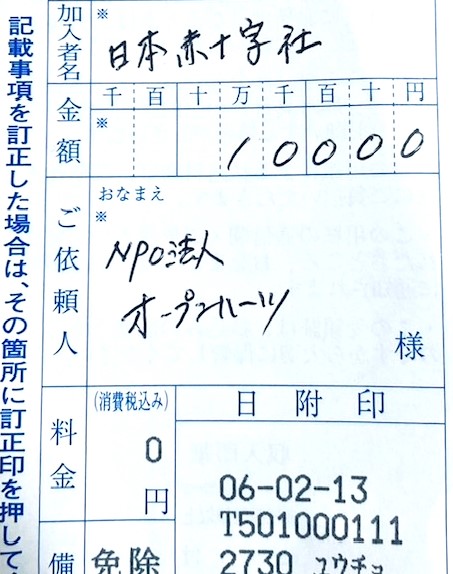 記載事項を訂正した場合は、その箇所に訂正印を押して
加入者名
※
日本赤十字社
金額
千 百 十 万 千 百 十 円
※
1 0 0 0 0
ご依頼人
おなまえ
※
NPO法人
オープンハーツ
様
料金
(消費税込み)
0
円
日附印
06-02-13
T501000111
2730 ユウチョ
備
免除